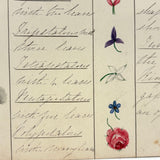 with two leaves
Tripetalous
with
three leaves
Tetrapetalous
with 4 leaves
Pentapetalous
with five leaves
Polypetalous
with many leaves